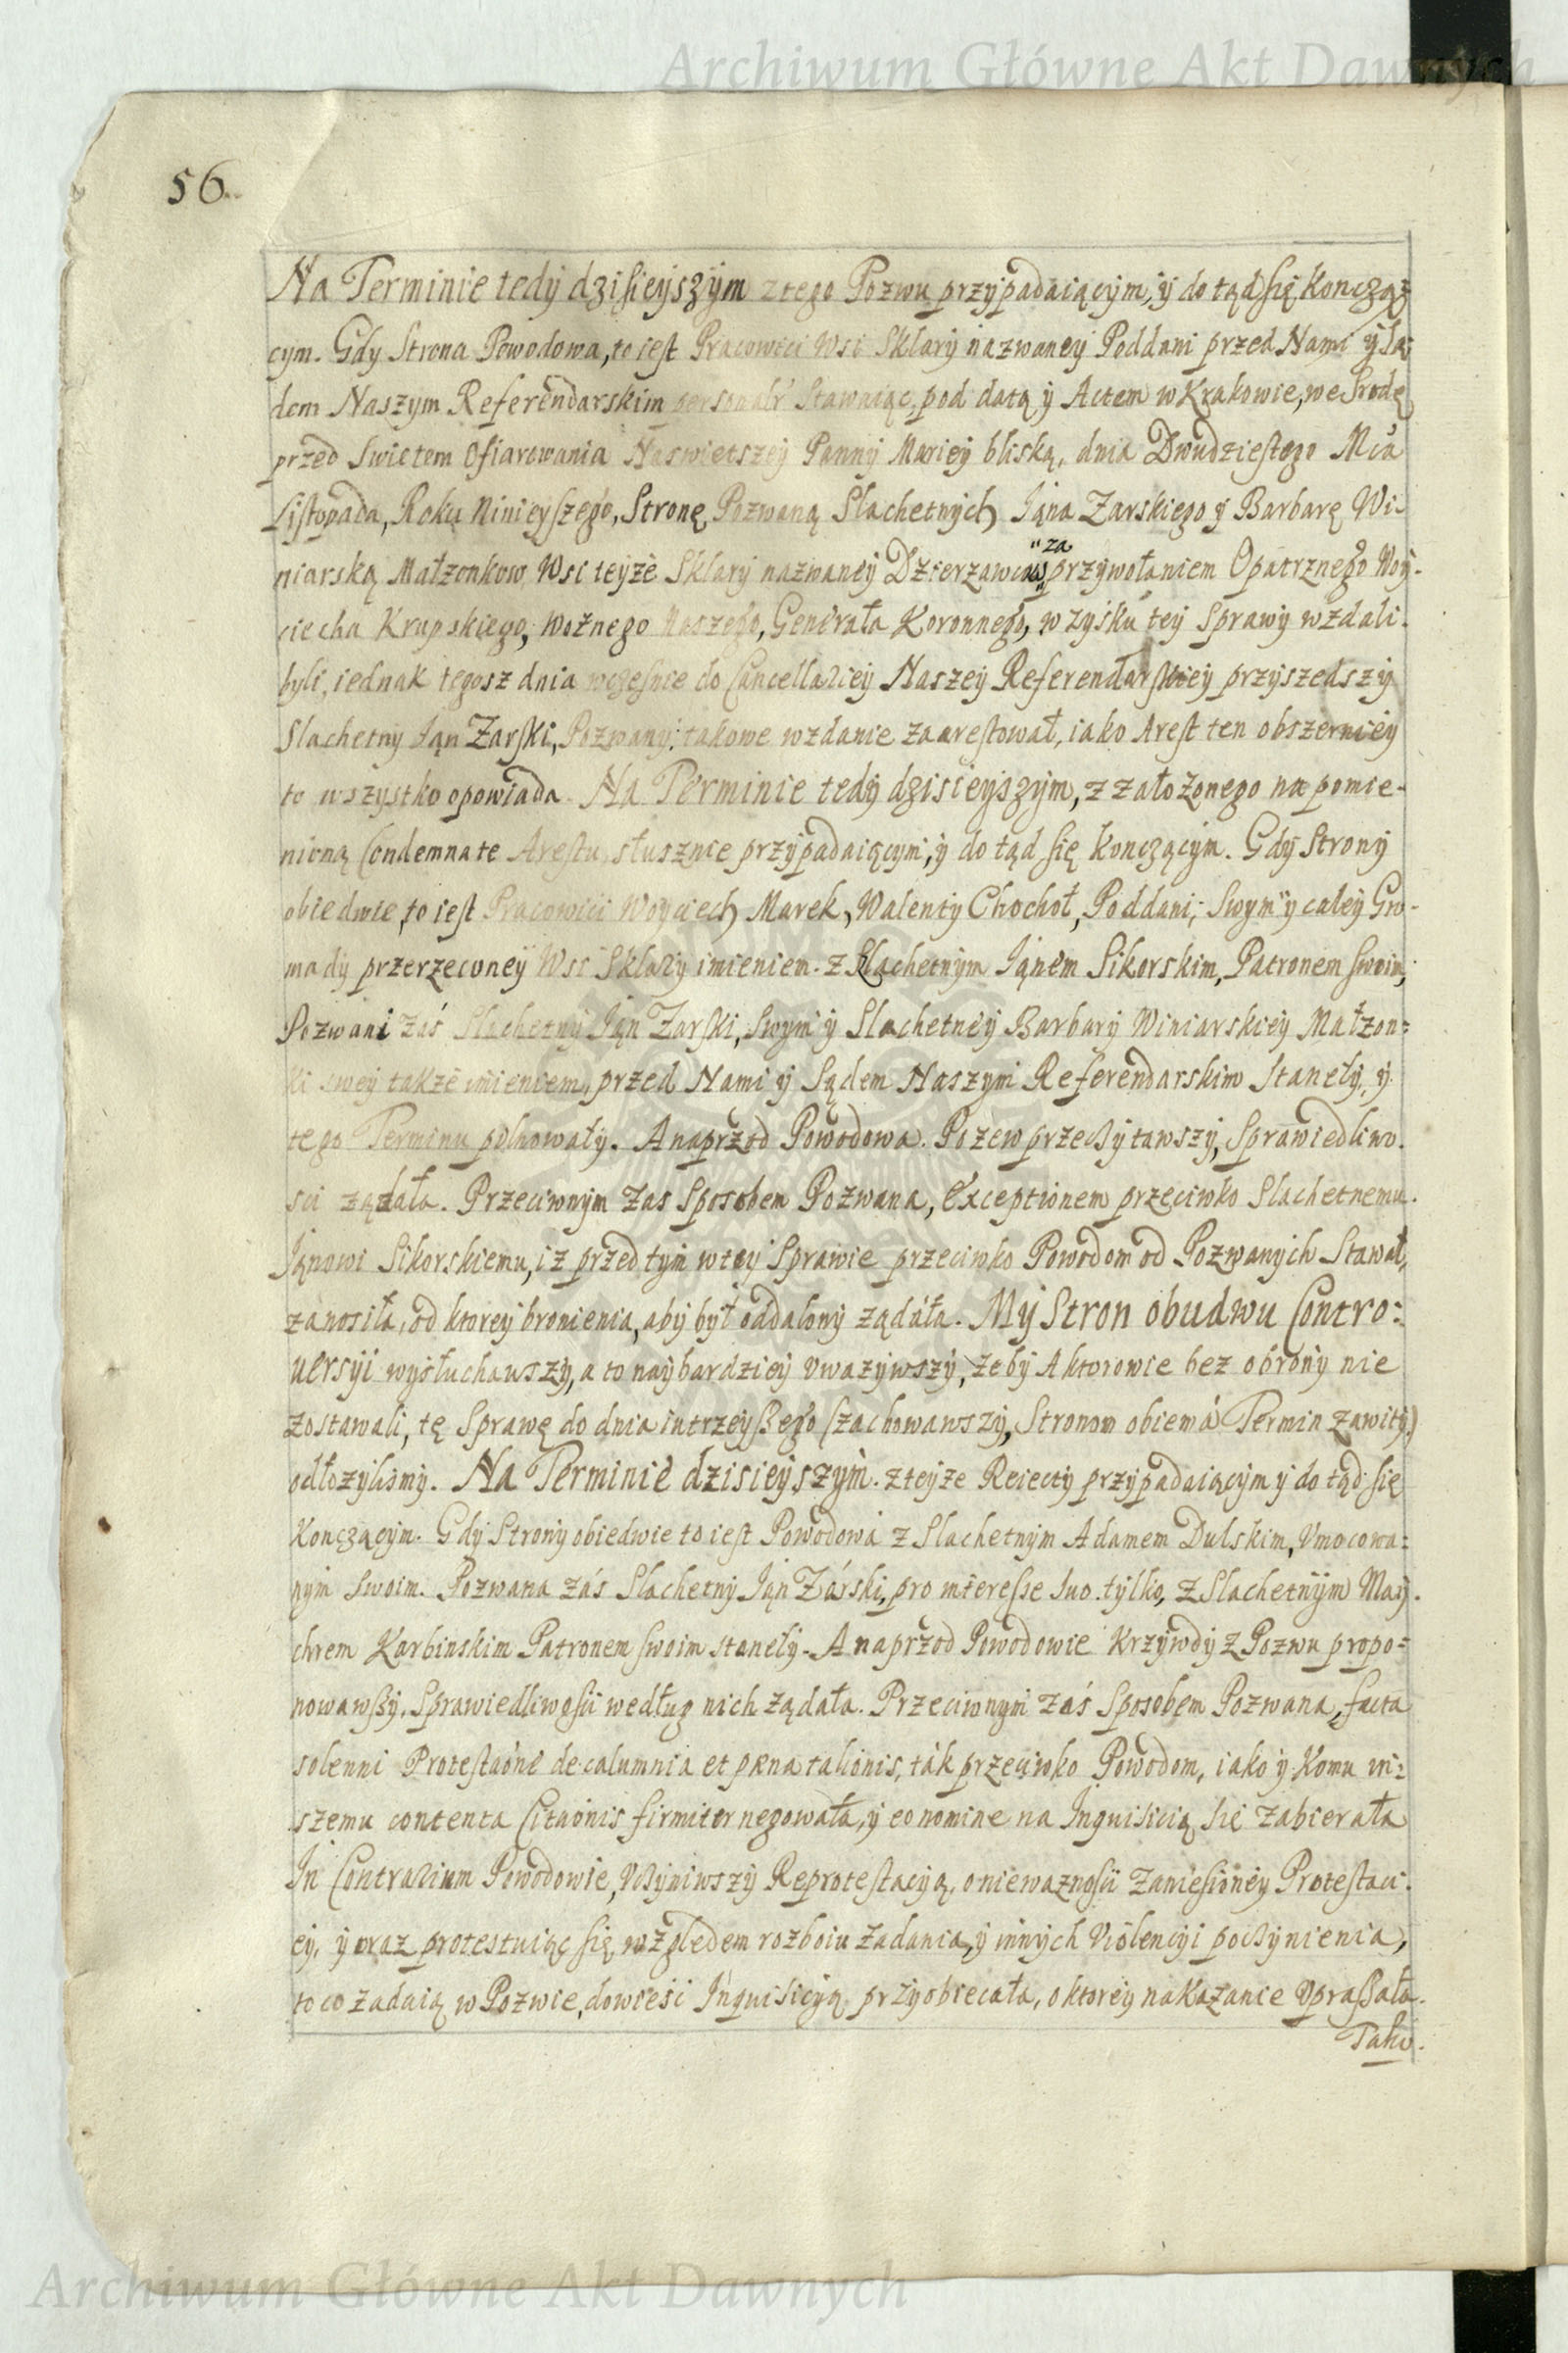 Archiwum Główne Akt Dawnych
56.
Na Terminie tedy dzisieyszym z tego Pozwu przypadaiącym, y do tąd się kończą-
cym. Gdy Strona Powodowa, to iest Pracowici Wsi Sklary nazwaney Poddani przed Nami y Są-
dem Naszym Referendarskim personalr Stawaiąc, pod datą y Actem w Krakowie, we Srodę
przed Swietem Ofiarowania Naswietszey Panny Mariey bliską, dnia Dwudziestego Mca
Listopada, Roku Ninieyszego, Stronę Pozwaną Slachetnych Jana Zarskiego y Barbarę Wi-
niarską Małzonkow, Wsi teyże Sklary nazwaney Dzierzawcow za przywołaniem Opatrznego Woy-
ciecha Krupskiego, Woźnego Naszego, Generała Koronnego, w zysku tey Sprawy wzdali
byli, iednak tegosz dnia wczesnie do Cancellariey Naszey Referendarskiey przyszedszy
Slachetny Jan Zarski, Pozwany, takowe wzdanie zaarestował, iako Arest ten obszerniey
to wszystko opowiada. Na Terminie tedy dzisieyszym, z założonego na pomie-
nioną Condemnate Arestu słusznie przypadaiącym, y do tąd się konczącym. Gdy Strony
obiedwie, to iest Pracowici Woyciech Marek, Walenty Chochoł, Poddani, Swym y całey Gro-
mady przerzeconey Wsi Sklary imieniem z Slachetnym Janem Sikorskim, Patronem swoim,
Pozwani zaś Slachetny Jan Zarski, Swym y Slachetney Barbary Winiarskiey Małzon-
ki swey także imieniem, przed Nami y Sądem Naszym Referendarskim Staneły, y
tego Terminu pilnowały. A naprzod Powodowa Pozew przeczytawszy, Sprawiedliwo-
sci ządała. Przeciwnym zas Sposobem Pozwana, Exceptionem przeciwko Slachetnemu
Janowi Sikorskiemu, iz przed tym w tey Sprawie przeciwko Powodom od Pozwanych Stawał,
zanosiła, od ktorey bronienia, aby był oddalony ządała. My Stron obudwu Contro-
uersyi wysłuchawszy, a to naybardziey vwazywszy, żeby Aktorowie bez obrony nie
zostawali, tę Sprawę do dnia iutrzeyszego zachowawszy, Stronom obiema Termin zawity
odłozylismy. Na Terminie dzisieyszym z teyże Reiecty przypadaiącym y do tąd się
Konczącym. Gdy Strony obiedwie to iest Powodowa z Slachetnym Adamem Dulskim, Vmocowa-
nym swoim. Pozwana zaś Slachetny Jan Zarski, pro interesse suo tylko, z Slachetnym May-
chrem Karbinskim Patronem swoim staneły. A naprzod Powodowie Krzywdy z Pozwu propo-
nowawszy, Sprawiedliwosci według nich ządała. Przeciwnym zaś Sposobem Pozwana, facta
solenni Protestaõne de calumnia et pæna talionis, tak przeciwko Powodom, iako y Komu in-
szemu contenta Citaõnis firmiter negowała, y eo nomine na Inquisicią się zabierała
In Contrarium Powodowie, Vczyniwszy Reprotestacyą, o niewaznosci zaniesioney Protestaci-
ey, y oraz protestuiąc się względem rozboiu zadania, y innych Violencyi poczynienia,
to co zadaią w Pozwie, dowiesci Inquisicyą przyobiecała, o ktorey nakazanie vpraszała.
Tako-
Archiwum Główne Akt Dawnych